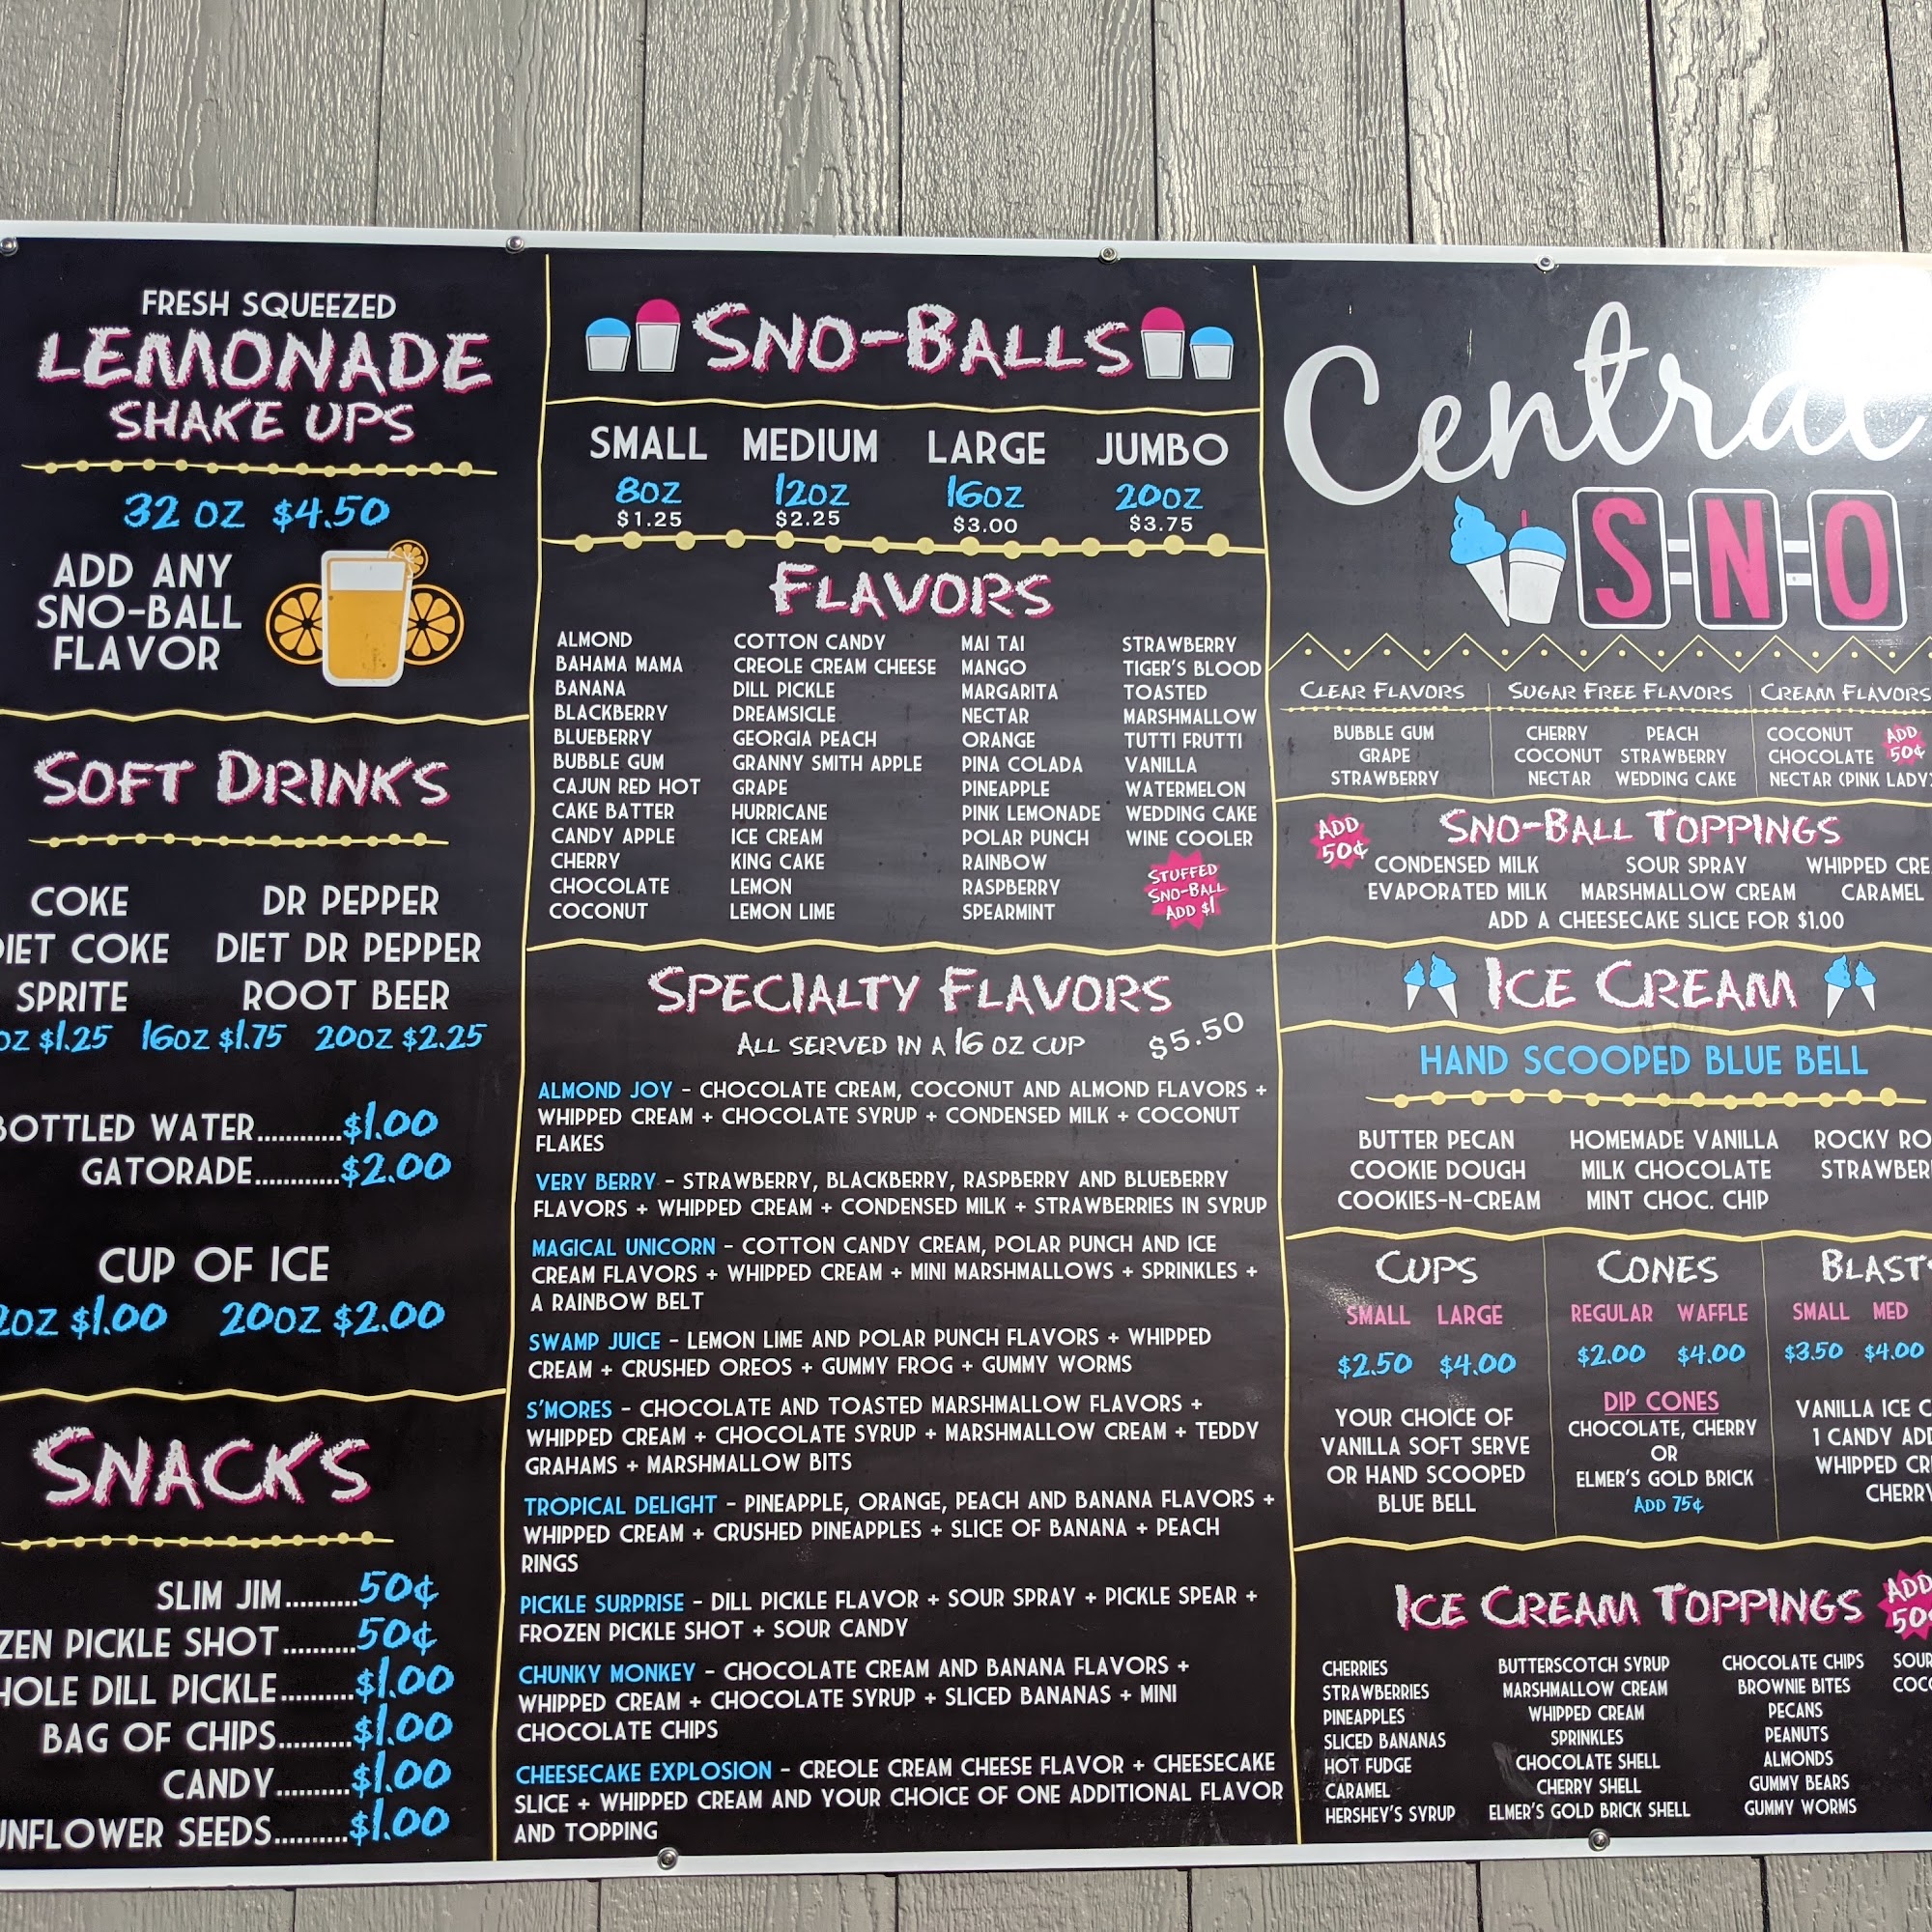 FRESH SQUEEZED
LEMONADE
SHAKE UPS
32 OZ $4.50
ADD ANY
SNO-BALL
FLAVOR
SOFT DRINKS
COKE DR PEPPER
DIET COKE DIET DR PEPPER
SPRITE ROOT BEER
OZ $1.25 16OZ $1.75 20OZ $2.25
BOTTLED WATER............$1.00
GATORADE............$2.00
CUP OF ICE
2OZ $1.00 20OZ $2.00
SNACKS
SLIM JIM..........50¢
ZEN PICKLE SHOT..........50¢
HOLE DILL PICKLE..........$1.00
BAG OF CHIPS..........$1.00
CANDY..........$1.00
UNFLOWER SEEDS..........$1.00
SNO-BALLS
SMALL MEDIUM LARGE JUMBO
8OZ 12OZ 16OZ 20OZ
$1.25 $2.25 $3.00 $3.75
FLAVORS
ALMOND
BAHAMA MAMA
BANANA
BLACKBERRY
BLUEBERRY
BUBBLE GUM
CAJUN RED HOT
CAKE BATTER
CANDY APPLE
CHERRY
CHOCOLATE
COCONUT
COTTON CANDY
CREOLE CREAM CHEESE
DILL PICKLE
DREAMSICLE
GEORGIA PEACH
GRANNY SMITH APPLE
GRAPE
HURRICANE
ICE CREAM
KING CAKE
LEMON
LEMON LIME
MAI TAI
MANGO
MARGARITA
NECTAR
ORANGE
PINA COLADA
PINEAPPLE
PINK LEMONADE
POLAR PUNCH
RAINBOW
RASPBERRY
SPEARMINT
STRAWBERRY
TIGER'S BLOOD
TOASTED
MARSHMALLOW
TUTTI FRUTTI
VANILLA
WATERMELON
WEDDING CAKE
WINE COOLER
STUFFED
SNO-BALL
ADD $1
SPECIALTY FLAVORS
ALL SERVED IN A 16 OZ CUP $5.50
ALMOND JOY - CHOCOLATE CREAM, COCONUT AND ALMOND FLAVORS +
WHIPPED CREAM + CHOCOLATE SYRUP + CONDENSED MILK + COCONUT
FLAKES
VERY BERRY - STRAWBERRY, BLACKBERRY, RASPBERRY AND BLUEBERRY
FLAVORS + WHIPPED CREAM + CONDENSED MILK + STRAWBERRIES IN SYRUP
MAGICAL UNICORN - COTTON CANDY CREAM, POLAR PUNCH AND ICE
CREAM FLAVORS + WHIPPED CREAM + MINI MARSHMALLOWS + SPRINKLES +
A RAINBOW BELT
SWAMP JUICE - LEMON LIME AND POLAR PUNCH FLAVORS + WHIPPED
CREAM + CRUSHED OREOS + GUMMY FROG + GUMMY WORMS
S'MORES - CHOCOLATE AND TOASTED MARSHMALLOW FLAVORS +
WHIPPED CREAM + CHOCOLATE SYRUP + MARSHMALLOW CREAM + TEDDY
GRAHAMS + MARSHMALLOW BITS
TROPICAL DELIGHT - PINEAPPLE, ORANGE, PEACH AND BANANA FLAVORS +
WHIPPED CREAM + CRUSHED PINEAPPLES + SLICE OF BANANA + PEACH
RINGS
PICKLE SURPRISE - DILL PICKLE FLAVOR + SOUR SPRAY + PICKLE SPEAR +
FROZEN PICKLE SHOT + SOUR CANDY
CHUNKY MONKEY - CHOCOLATE CREAM AND BANANA FLAVORS +
WHIPPED CREAM + CHOCOLATE SYRUP + SLICED BANANAS + MINI
CHOCOLATE CHIPS
CHEESECAKE EXPLOSION - CREOLE CREAM CHEESE FLAVOR + CHEESECAKE
SLICE + WHIPPED CREAM AND YOUR CHOICE OF ONE ADDITIONAL FLAVOR
AND TOPPING
Central
S-N-O
CLEAR FLAVORS
BUBBLE GUM
GRAPE
STRAWBERRY
SUGAR FREE FLAVORS
CHERRY PEACH
COCONUT STRAWBERRY
NECTAR WEDDING CAKE
CREAM FLAVORS
COCONUT
CHOCOLATE
NECTAR (PINK LADY)
ADD
50¢
ADD
50¢
SNO-BALL TOPPINGS
CONDENSED MILK SOUR SPRAY WHIPPED CRE
EVAPORATED MILK MARSHMALLOW CREAM CARAMEL
ADD A CHEESECAKE SLICE FOR $1.00
ICE CREAM
HAND SCOOPED BLUE BELL
BUTTER PECAN HOMEMADE VANILLA ROCKY RO
COOKIE DOUGH MILK CHOCOLATE STRAWBER
COOKIES-N-CREAM MINT CHOC. CHIP
CUPS
SMALL LARGE
$2.50 $4.00
YOUR CHOICE OF
VANILLA SOFT SERVE
OR HAND SCOOPED
BLUE BELL
CONES
REGULAR WAFFLE
$2.00 $4.00
DIP CONES
CHOCOLATE, CHERRY
OR
ELMER'S GOLD BRICK
ADD 75¢
BLASTS
SMALL MED
$3.50 $4.00
VANILLA ICE C
1 CANDY ADD
WHIPPED CR
CHERRY
ICE CREAM TOPPINGS
ADD
50¢
CHERRIES
STRAWBERRIES
PINEAPPLES
SLICED BANANAS
HOT FUDGE
CARAMEL
HERSHEY'S SYRUP
BUTTERSCOTCH SYRUP
MARSHMALLOW CREAM
WHIPPED CREAM
SPRINKLES
CHOCOLATE SHELL
CHERRY SHELL
ELMER'S GOLD BRICK SHELL
CHOCOLATE CHIPS
BROWNIE BITES
PECANS
PEANUTS
ALMONDS
GUMMY BEARS
GUMMY WORMS
SOUR
COCO